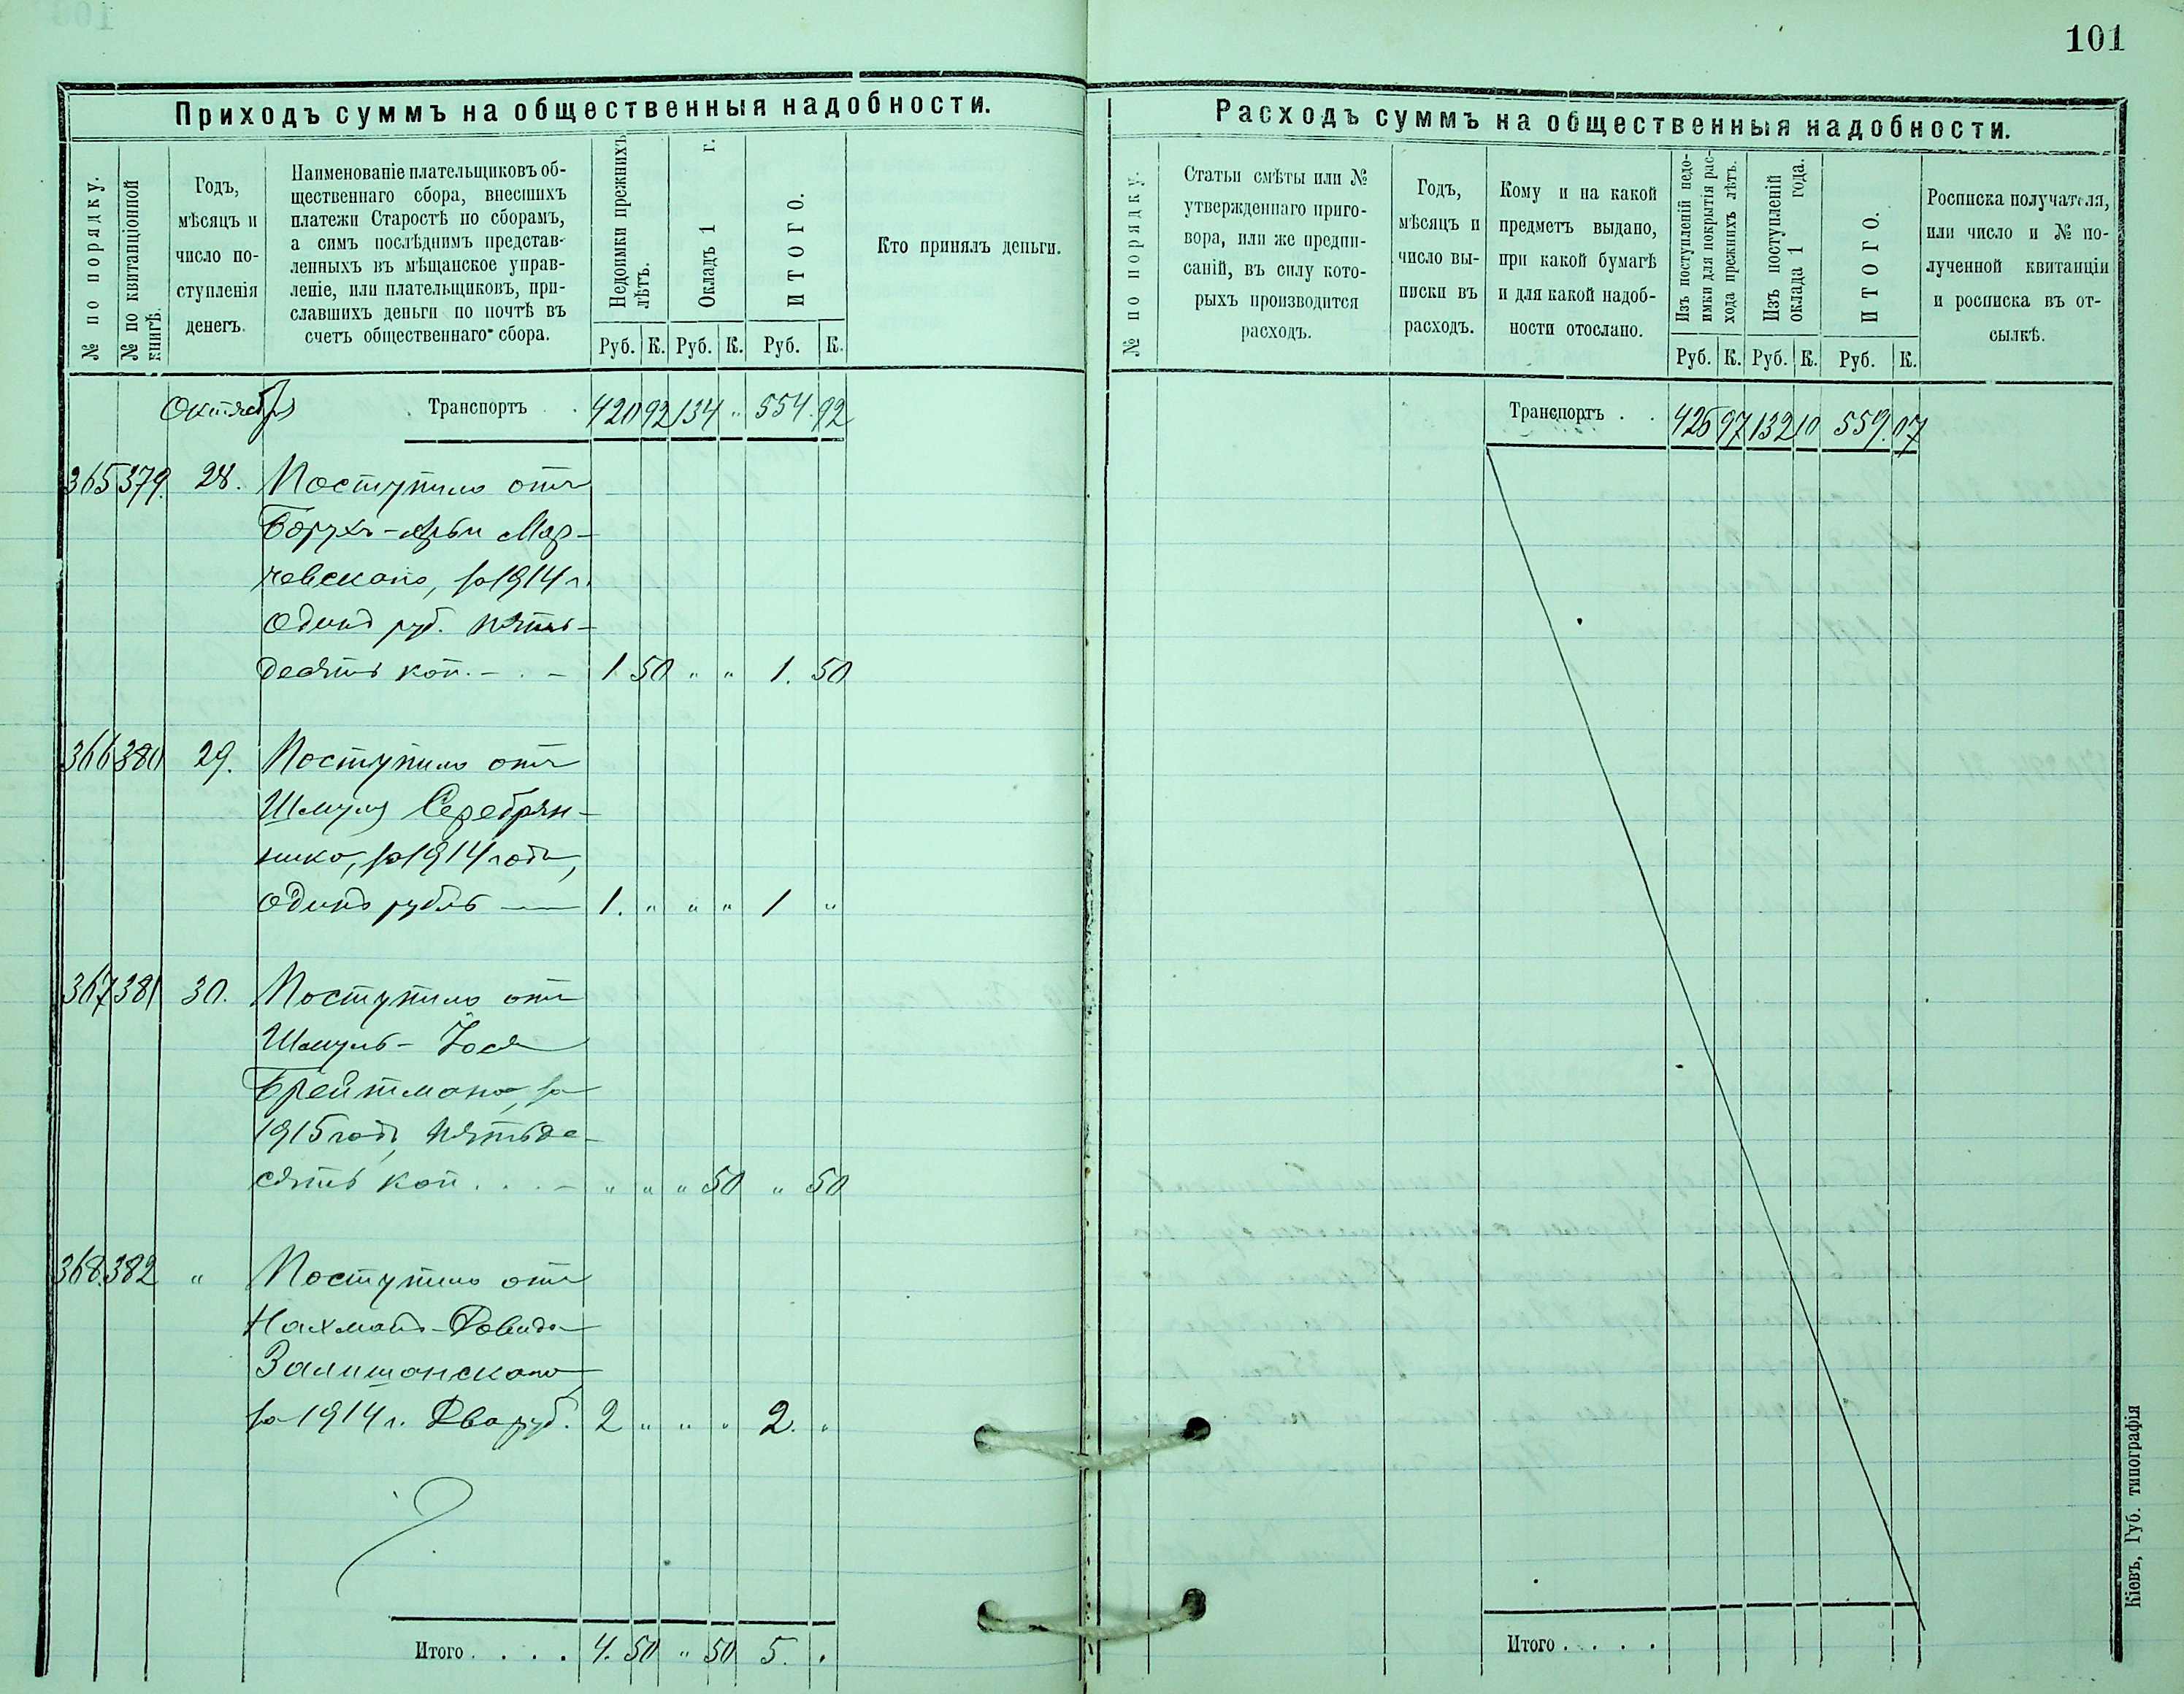 101
Приходъ суммъ на общественныя надобности.
№ по порядку.
№ по квитанціонной
книгѣ.
Годъ,
мѣсяцъ и
число по-
ступленія
денегъ.
Наименованіе плательщиковъ об-
щественнаго сбора, внесшихъ
платежи Старостѣ по сборамъ,
а симъ послѣднимъ представ-
ленныхъ въ мѣщанское управ-
леніе, или плательщиковъ, при-
славшихъ деньги по почтѣ въ
счетъ общественнаго сбора.
Недоимки прежнихъ
лѣтъ.
Окладъ 1 г.
ИТОГО.
Руб. К. Руб. К. Руб. К.
Кто принялъ деньги.
Октябрь Транспортъ . . 420 92 134 „ 554. 92
365 379. 28. Поступило отъ
Борухъ-Арьи Мар-
чевскаго, за 1914 г.
Одинъ руб. пять-
десятъ коп. - . - 1 50 „ „ 1. 50
366 380 29. Поступило отъ
Шмуля Серебрян-
ника, за 1914 годъ,
Одинъ рубль — 1. „ „ „ 1 „
367 381 30. Поступило отъ
Шмуль-Іося
Брейтмана, за
1915 годъ, пятьде-
сятъ коп . . . - „ „ „ 50 „ 50
368. 382 „ Поступило отъ
Нахманъ-Давида
Залишанскаго
за 1914 г. Два руб. 2 „ „ „ 2. „
Итого . . . . 4. 50 „ 50 5. .
Расходъ суммъ на общественныя надобности.
№ по порядку.
Статьи смѣты или №
утвержденнаго приго-
вора, или же предпи-
саній, въ силу кото-
рыхъ производится
расходъ.
Годъ,
мѣсяцъ и
число вы-
писки въ
расходъ.
Кому и на какой
предметъ выдано,
при какой бумагѣ
и для какой надоб-
ности отослано.
Изъ поступленій недо-
имки для покрытія рас-
хода прежнихъ лѣтъ.
Изъ поступленій
оклада 1 года.
ИТОГО.
Руб. К. Руб. К. Руб. К.
Росписка получателя,
или число и № по-
лученной квитанціи
и росписка въ от-
сылкѣ.
Транспортъ . . 426 97 132 10 559. 07
Итого . . . .
Кіевъ, Губ. типографія